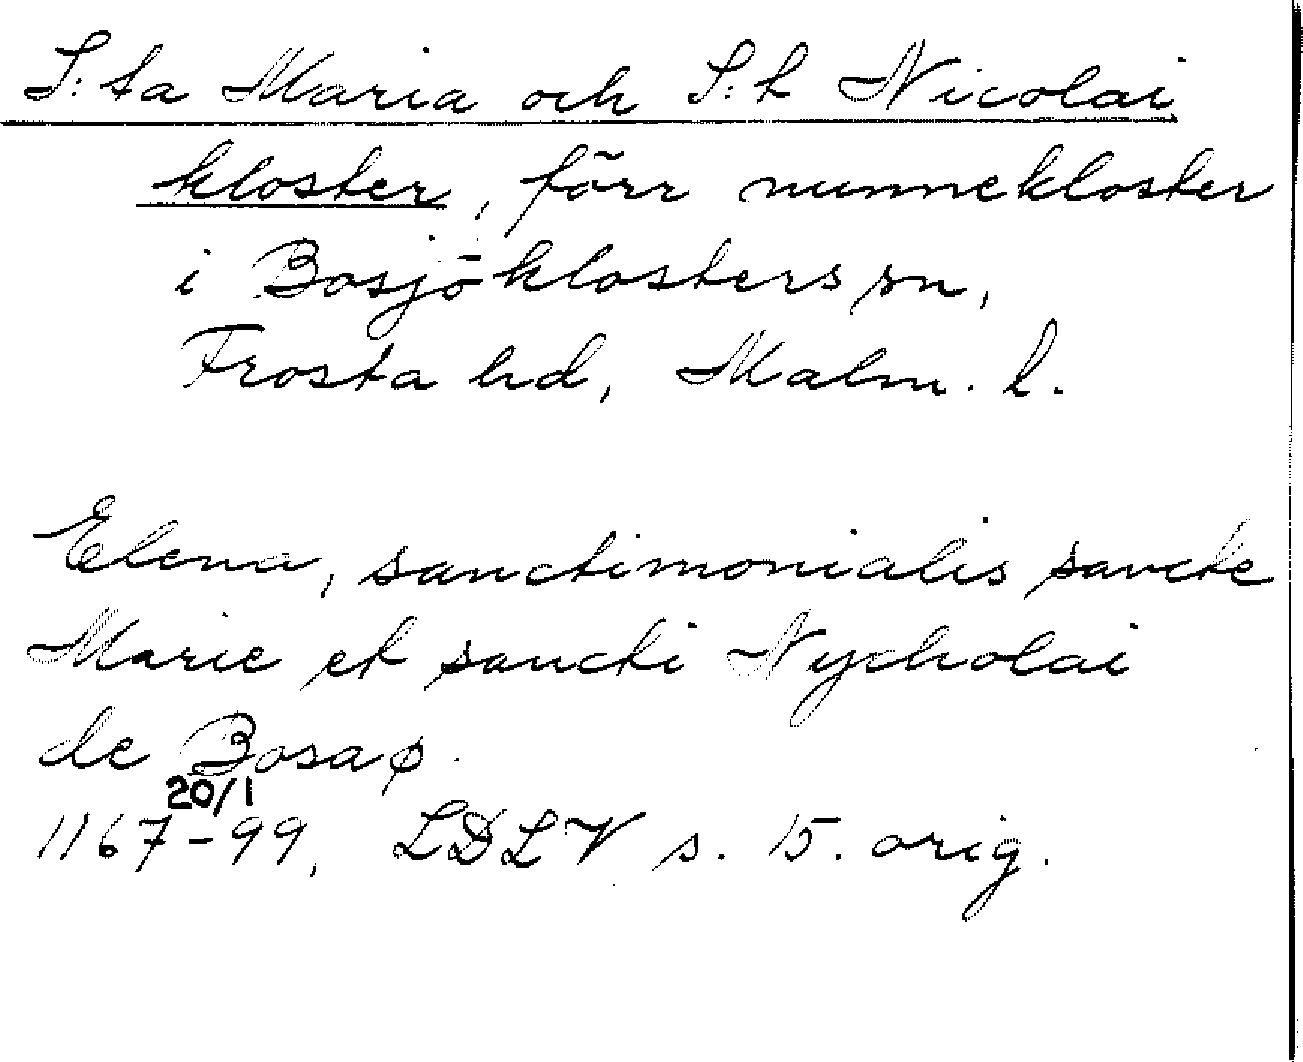 S:ta Maria och S:t Nicolai
kloster, förr nunnekloster
i Bosjöklosters sn,
Frosta hd, Malm. l.
Elena, sanctimonialis sancte
Marie et sancti Nycholai
de Bosaø.
20/1
1167-99, LDLV s. 15. orig.